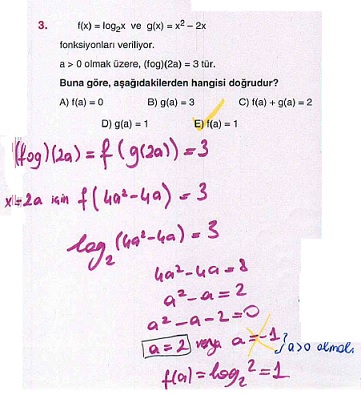 3. f(x) = log₂x ve g(x) = x² – 2x
fonksiyonları veriliyor.
a > 0 olmak üzere, (fog)(2a) = 3 tür.
Buna göre, aşağıdakilerden hangisi doğrudur?
A) f(a) = 0 B) g(a) = 3 C) f(a) + g(a) = 2
D) g(a) = 1 E) f(a) = 1
(fog)(2a) = f(g(2a)) = 3
x=2a için f(4a²-4a) = 3
log₂(4a²-4a) = 3
4a²-4a = 8
a²-a = 2
a²-a-2=0
a=2 veya a=-1 } a>0 olmalı.
f(a)=log₂2=1